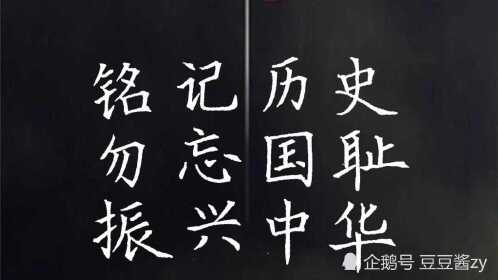 铭记历史
勿忘国耻
振兴中华
企鹅号 豆豆酱zy